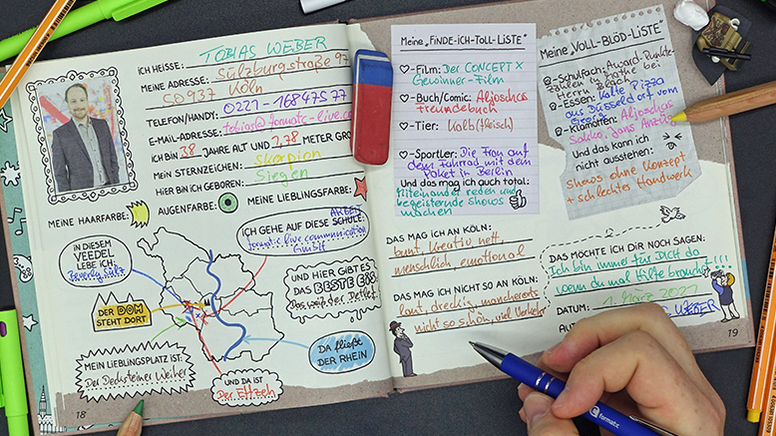 ICH HEISSE: TOBIAS WEBER
MEINE ADRESSE: Sülzburgstraße 97
50937 Köln
TELEFON/HANDY: 0221-168 475 77
E-MAIL-ADRESSE: tobias@formatc-live.co
ICH BIN 38 JAHRE ALT UND 1,78 METER GROß
MEIN STERNZEICHEN: Skorpion
HIER BIN ICH GEBOREN: Siegen
MEINE HAARFARBE:
AUGENFARBE:
MEINE LIEBLINGSFARBE:
IN DIESEM
VEEDEL
LEBE ICH:
Beverly Sülz
ICH GEHE AUF DIESE SCHULE:
ARBEIT
format:c live communication
GmbH
UND HIER GIBT ES
DAS BESTE EIS
DER DOM
STEHT DORT
DA fließt
DER RHEIN
MEIN LIEBLINGSPLATZ IST:
Der Decksteiner Weiher
UND DA IST
Der Effzeh
18
Meine „FINDE-ICH-TOLL-LISTE"
-Film: Der CONCEPT X
Gewinner-Film
-Buch/Comic: Aljoschas
Freundebuch
-Tier: Kalb(fleisch)
-Sportler: Die Frau auf
dem Fahrrad mit dem
Paket in Berlin
Und das mag ich auch total:
Miteinander reden und
begeisternde Shows
machen
Meine „VOLL-BLÖD-LISTE"
-Schulfach: Award-Punkte-
zählen in Mathe bei
Herrn Blach
-Essen: Kalte Pizza
aus Düsseldorf vom
-Klamotten: Aljoschas
Sakko, Jans Anzüge
Und das kann ich
nicht ausstehen:
Shows ohne Konzept
+ schlechtes Handwerk
DAS MAG ICH AN KÖLN:
bunt, kreativ, nett,
menschlich, emotional
DAS MAG ICH NICHT SO AN KÖLN:
laut, dreckig, mancherorts
nicht so schön, viel Verkehr
DAS MÖCHTE ICH DIR NOCH SAGEN:
Ich bin immer für DICH da
wenn du mal Hilfe brauchst!!!
DATUM: 1. März 2021
WEBER
19
formatc